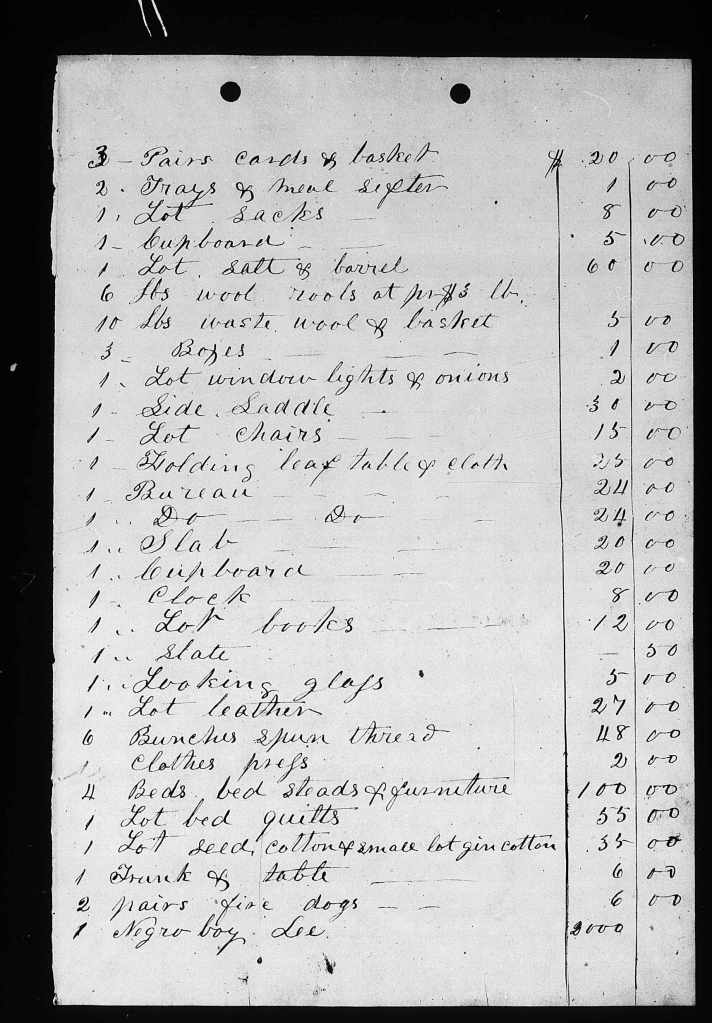 3 – Pairs cards & basket $ 20 00
2 . Trays & meal sifter 1 00
1 . Lot sacks – 8 00
1 – Cupboard – — 5 00
1 Lot salt & barrel 60 00
6 lbs wool rools at pr $3 lb.
10 lbs waste wool & basket 5 00
3 – Boxes — — — 1 00
1 . Lot window lights & onions 2 00
1 – Side Saddle – 30 00
1 – Lot chairs — — 15 00
1 – Folding leaf table & cloth 25 00
1 Bureau — — — 24 00
1 .. Do — — Do — 24 00
1 .. Slab — — 20 00
1 .. Cupboard — — 20 00
1 – Clock — — — 8 00
1 .. Lot books — — 12 00
1 .. Slate – 50
1 .. Looking glass 5 00
1 „ Lot leather 27 00
6 Bunches spun thread 48 00
1 Clothes press 2 00
4 Beds bed steads & furneture 100 00
1 Lot bed quilts 55 00
1 Lot seed cotton & small lot gin cotton 35 00
1 Trunk & table — 6 00
2 pairs fire dogs – – 6 00
1 Negro boy Lee 2000